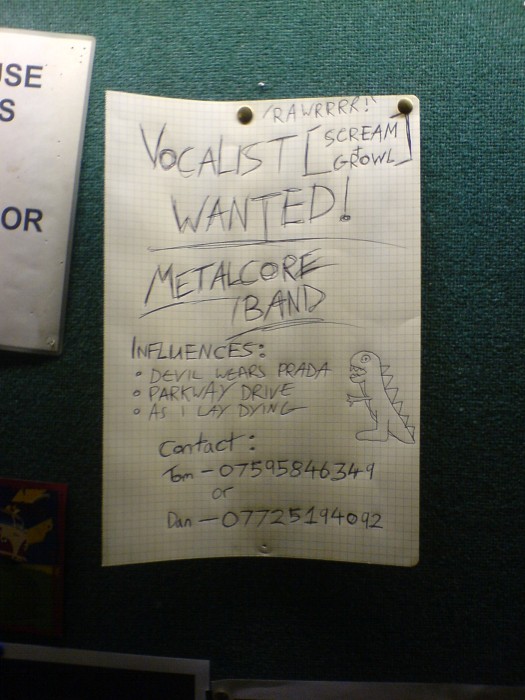 USE
S
OR
/RAWRRRR!
VOCALIST [SCREAM + GROWL]
WANTED!
METALCORE
/BAND
INFLUENCES:
• DEVIL WEARS PRADA
• PARKWAY DRIVE
• AS I LAY DYING
Contact:
Tom - 07595846349
or
Dan - 07725194092